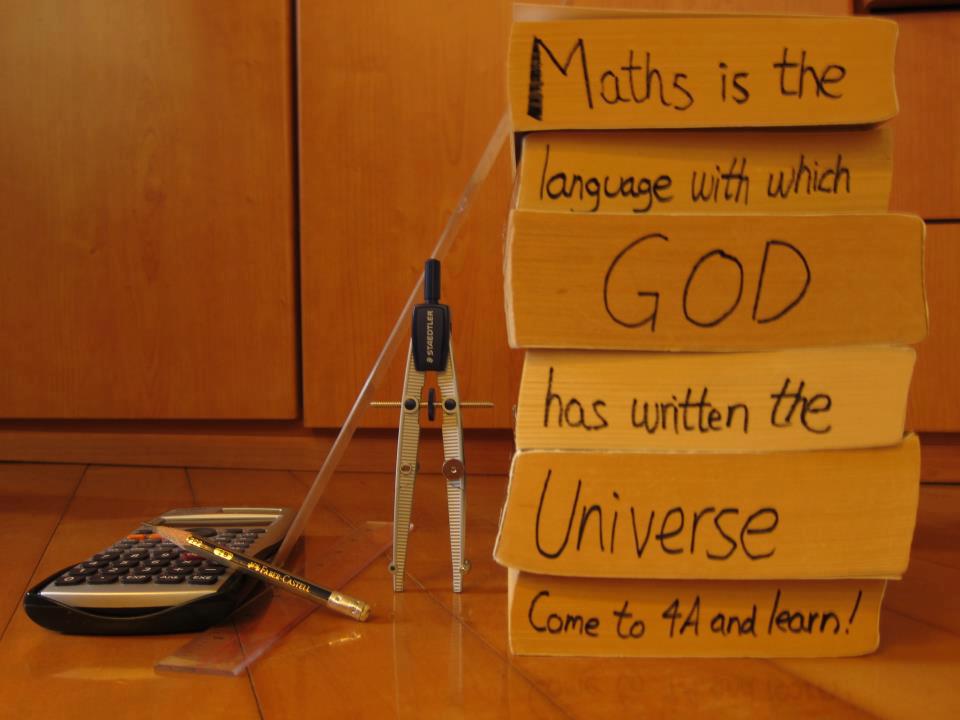 Maths is the
language with which
GOD
has written the
Universe
Come to 4A and learn!
STAEDTLER
FABER-CASTELL